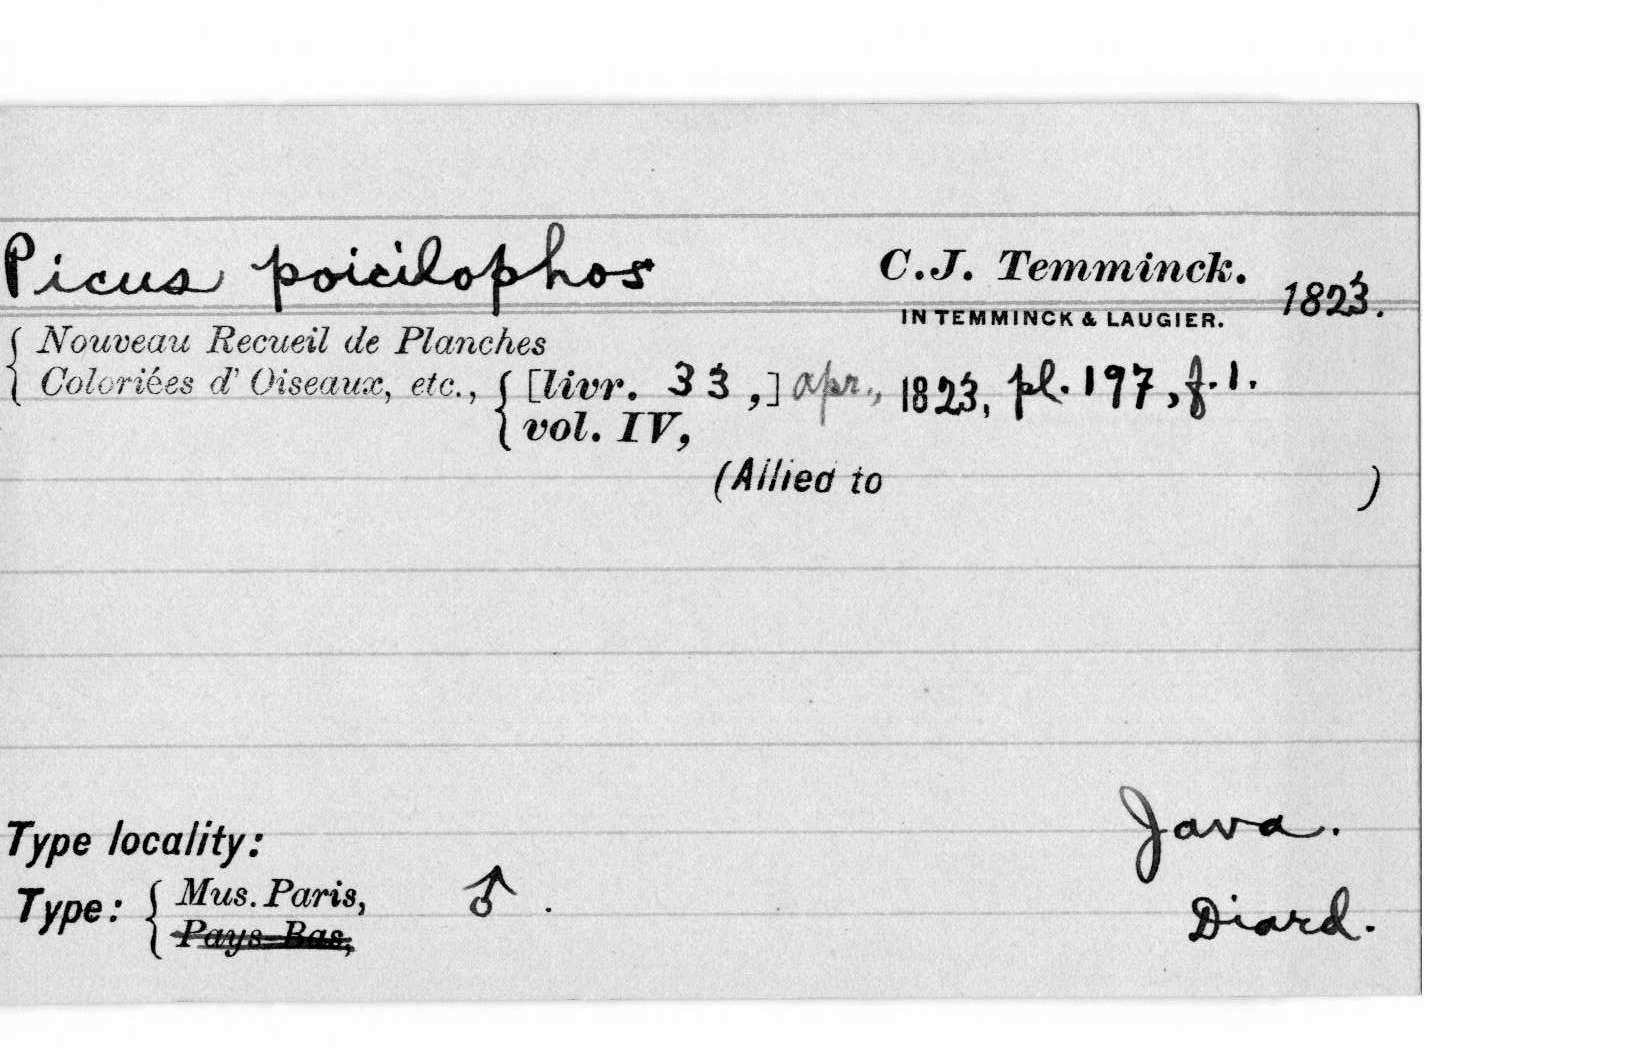 Picus poicilophos C.J. Temminck. 1823.
IN TEMMINCK & LAUGIER.
Nouveau Recueil de Planches
Coloriées d' Oiseaux, etc., [livr. 33,] apr., 1823, pl. 197, f. 1.
vol. IV,
(Allied to )
Type locality: Java.
Type: Mus. Paris, ♂. Diard.
Pays-Bas,